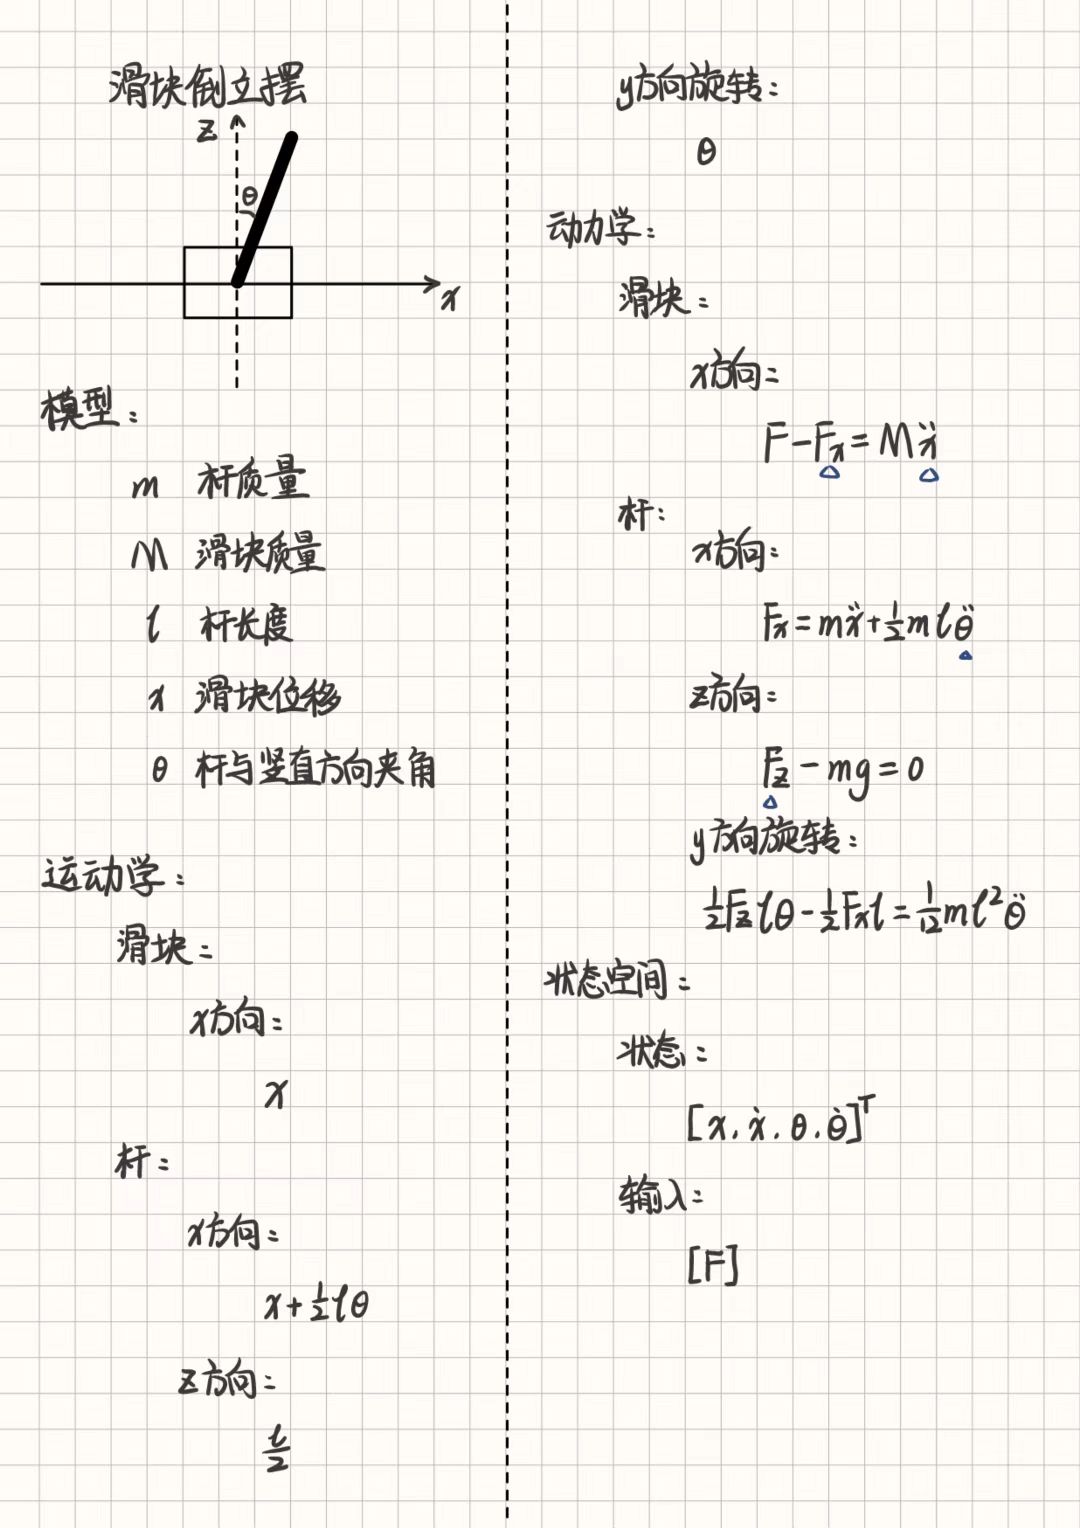 滑块倒立摆
z
θ
x
模型：
m 杆质量
M 滑块质量
l 杆长度
x 滑块位移
θ 杆与竖直方向夹角
运动学：
滑块：
x方向：
x
杆：
x方向：
x+½lθ
z方向：
l/2
y方向旋转：
θ
动力学：
滑块：
x方向：
F-Fₓ=Mẍ
杆：
x方向：
Fₓ=mẍ+½mlθ̈
z方向：
F_z-mg=0
y方向旋转：
½F_zlθ-½Fₓl=1/12ml²θ̈
状态空间：
状态：
[x,ẋ,θ,θ̇]ᵀ
输入：
[F]